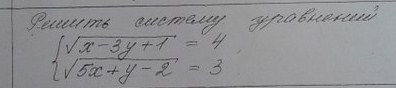 Решить систему уравнений
{√(x-3y+1) = 4
{√(5x+y-2) = 3